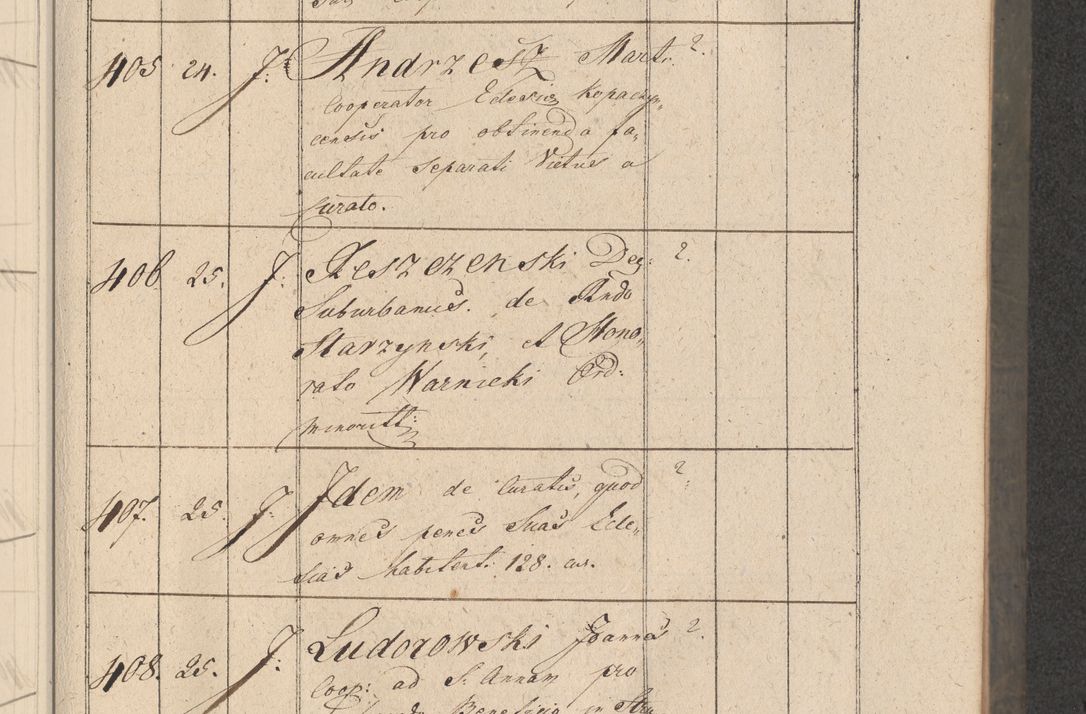 405 24. J: Andrzesz Mart. 2.
Cooperator Kopaczyn„
censis pro obtinenda fa„
cultate separati Victus a
Curato.
406 25. J: Reszczenski Dec: 2.
Suburbanus. de Ando
Starzynski, et Hono„
rato Warnicki Ord:
minoritt:
407. 25. J: Idem de Curatis, quod 2.
omnes penes Suas Ecle„
sias habitent. 128. cur.
408. 25. J: Ludorowski Joannes 2.
Coop: ad S. Annam pro
Beneficio in